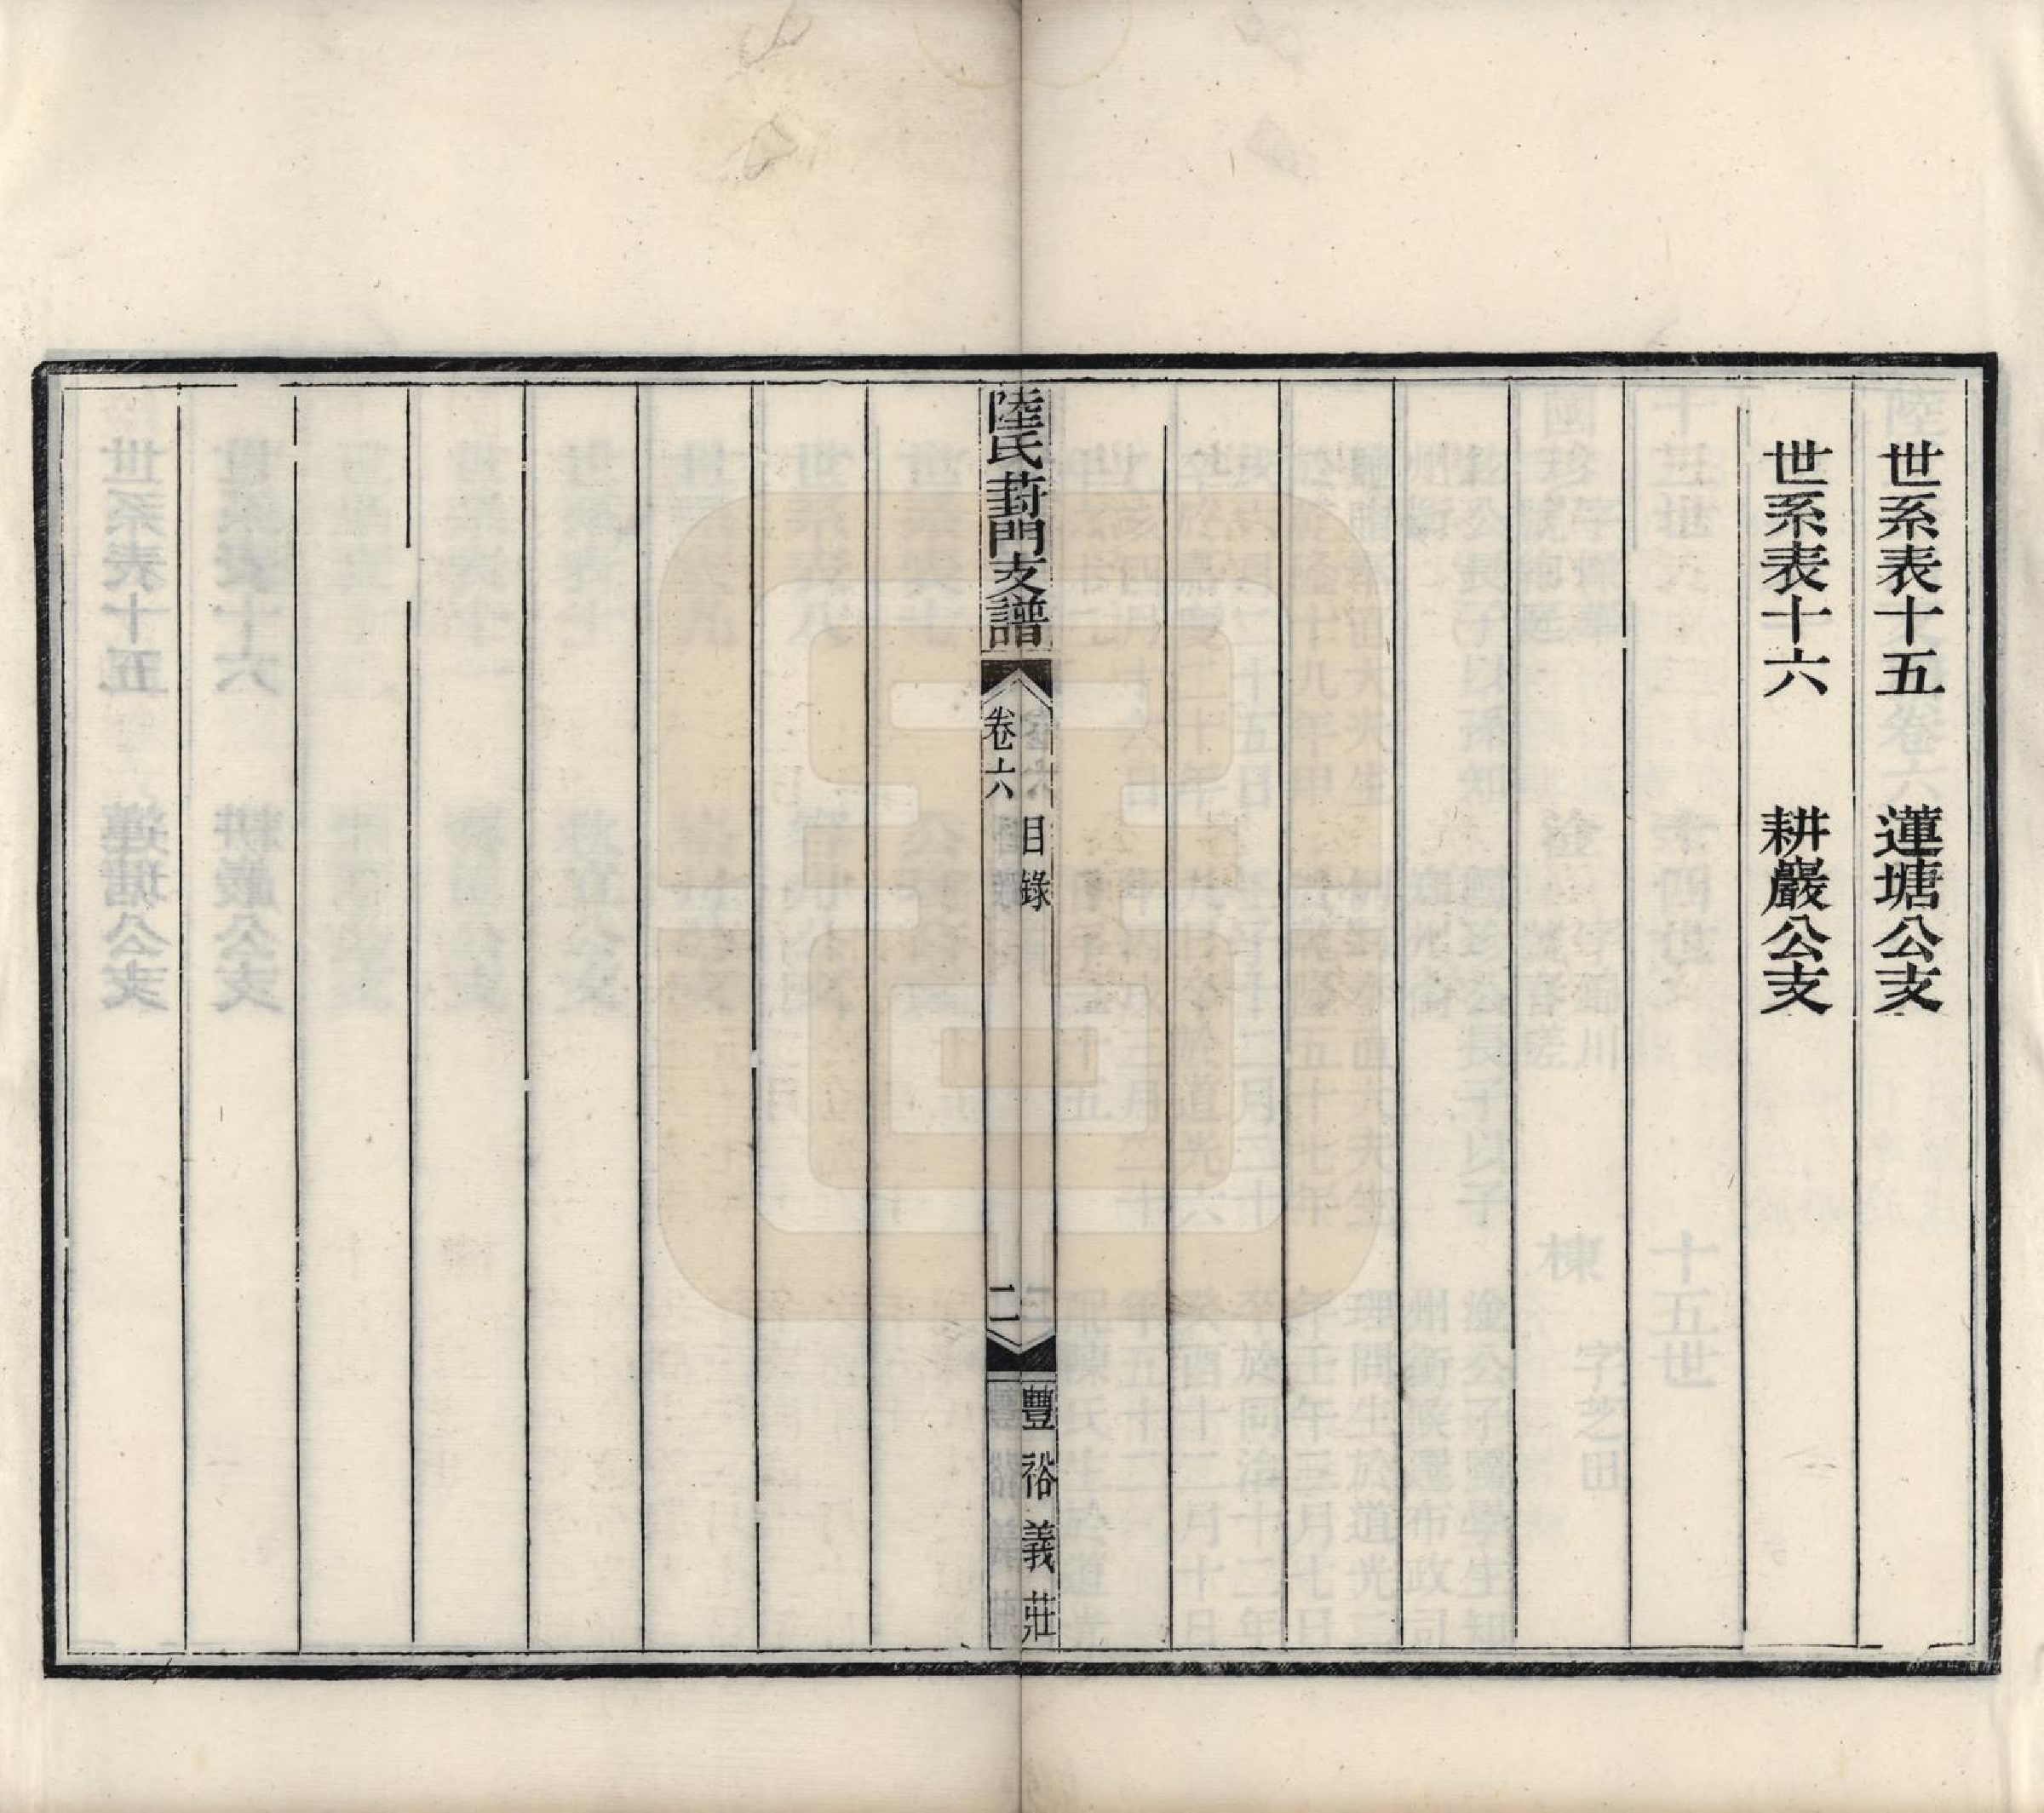 世系表十五　蓮塘公支
世系表十六　耕巖公支
陸氏葑門支譜
卷六
目錄
二
豐裕義莊